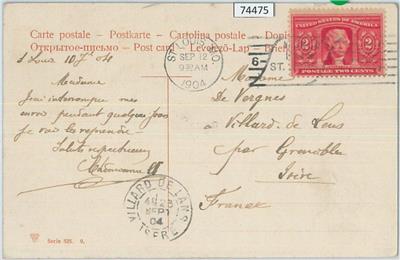 74475
Carte postale - Postkarte - Cartolina postale - Dopi
Открытое-письмо - Post card - Levelező-Lap - Brief
ST. LOUIS, MO.
SEP 12
9 30 AM
1904
6
ST.
UNITED STATES OF AMERICA
2 2
POSTAGE TWO CENTS
St Louis
Madame
J'ai interrompu mes
envois pendant quelques jours
je vais les reprendre
Saluts respectueux
Madame
De Vergnes
à Villard de Lans
par Grenoble
Isère
France
VILLARD DE LANS
SEPT
04
ISERE
Serie 525. 9.